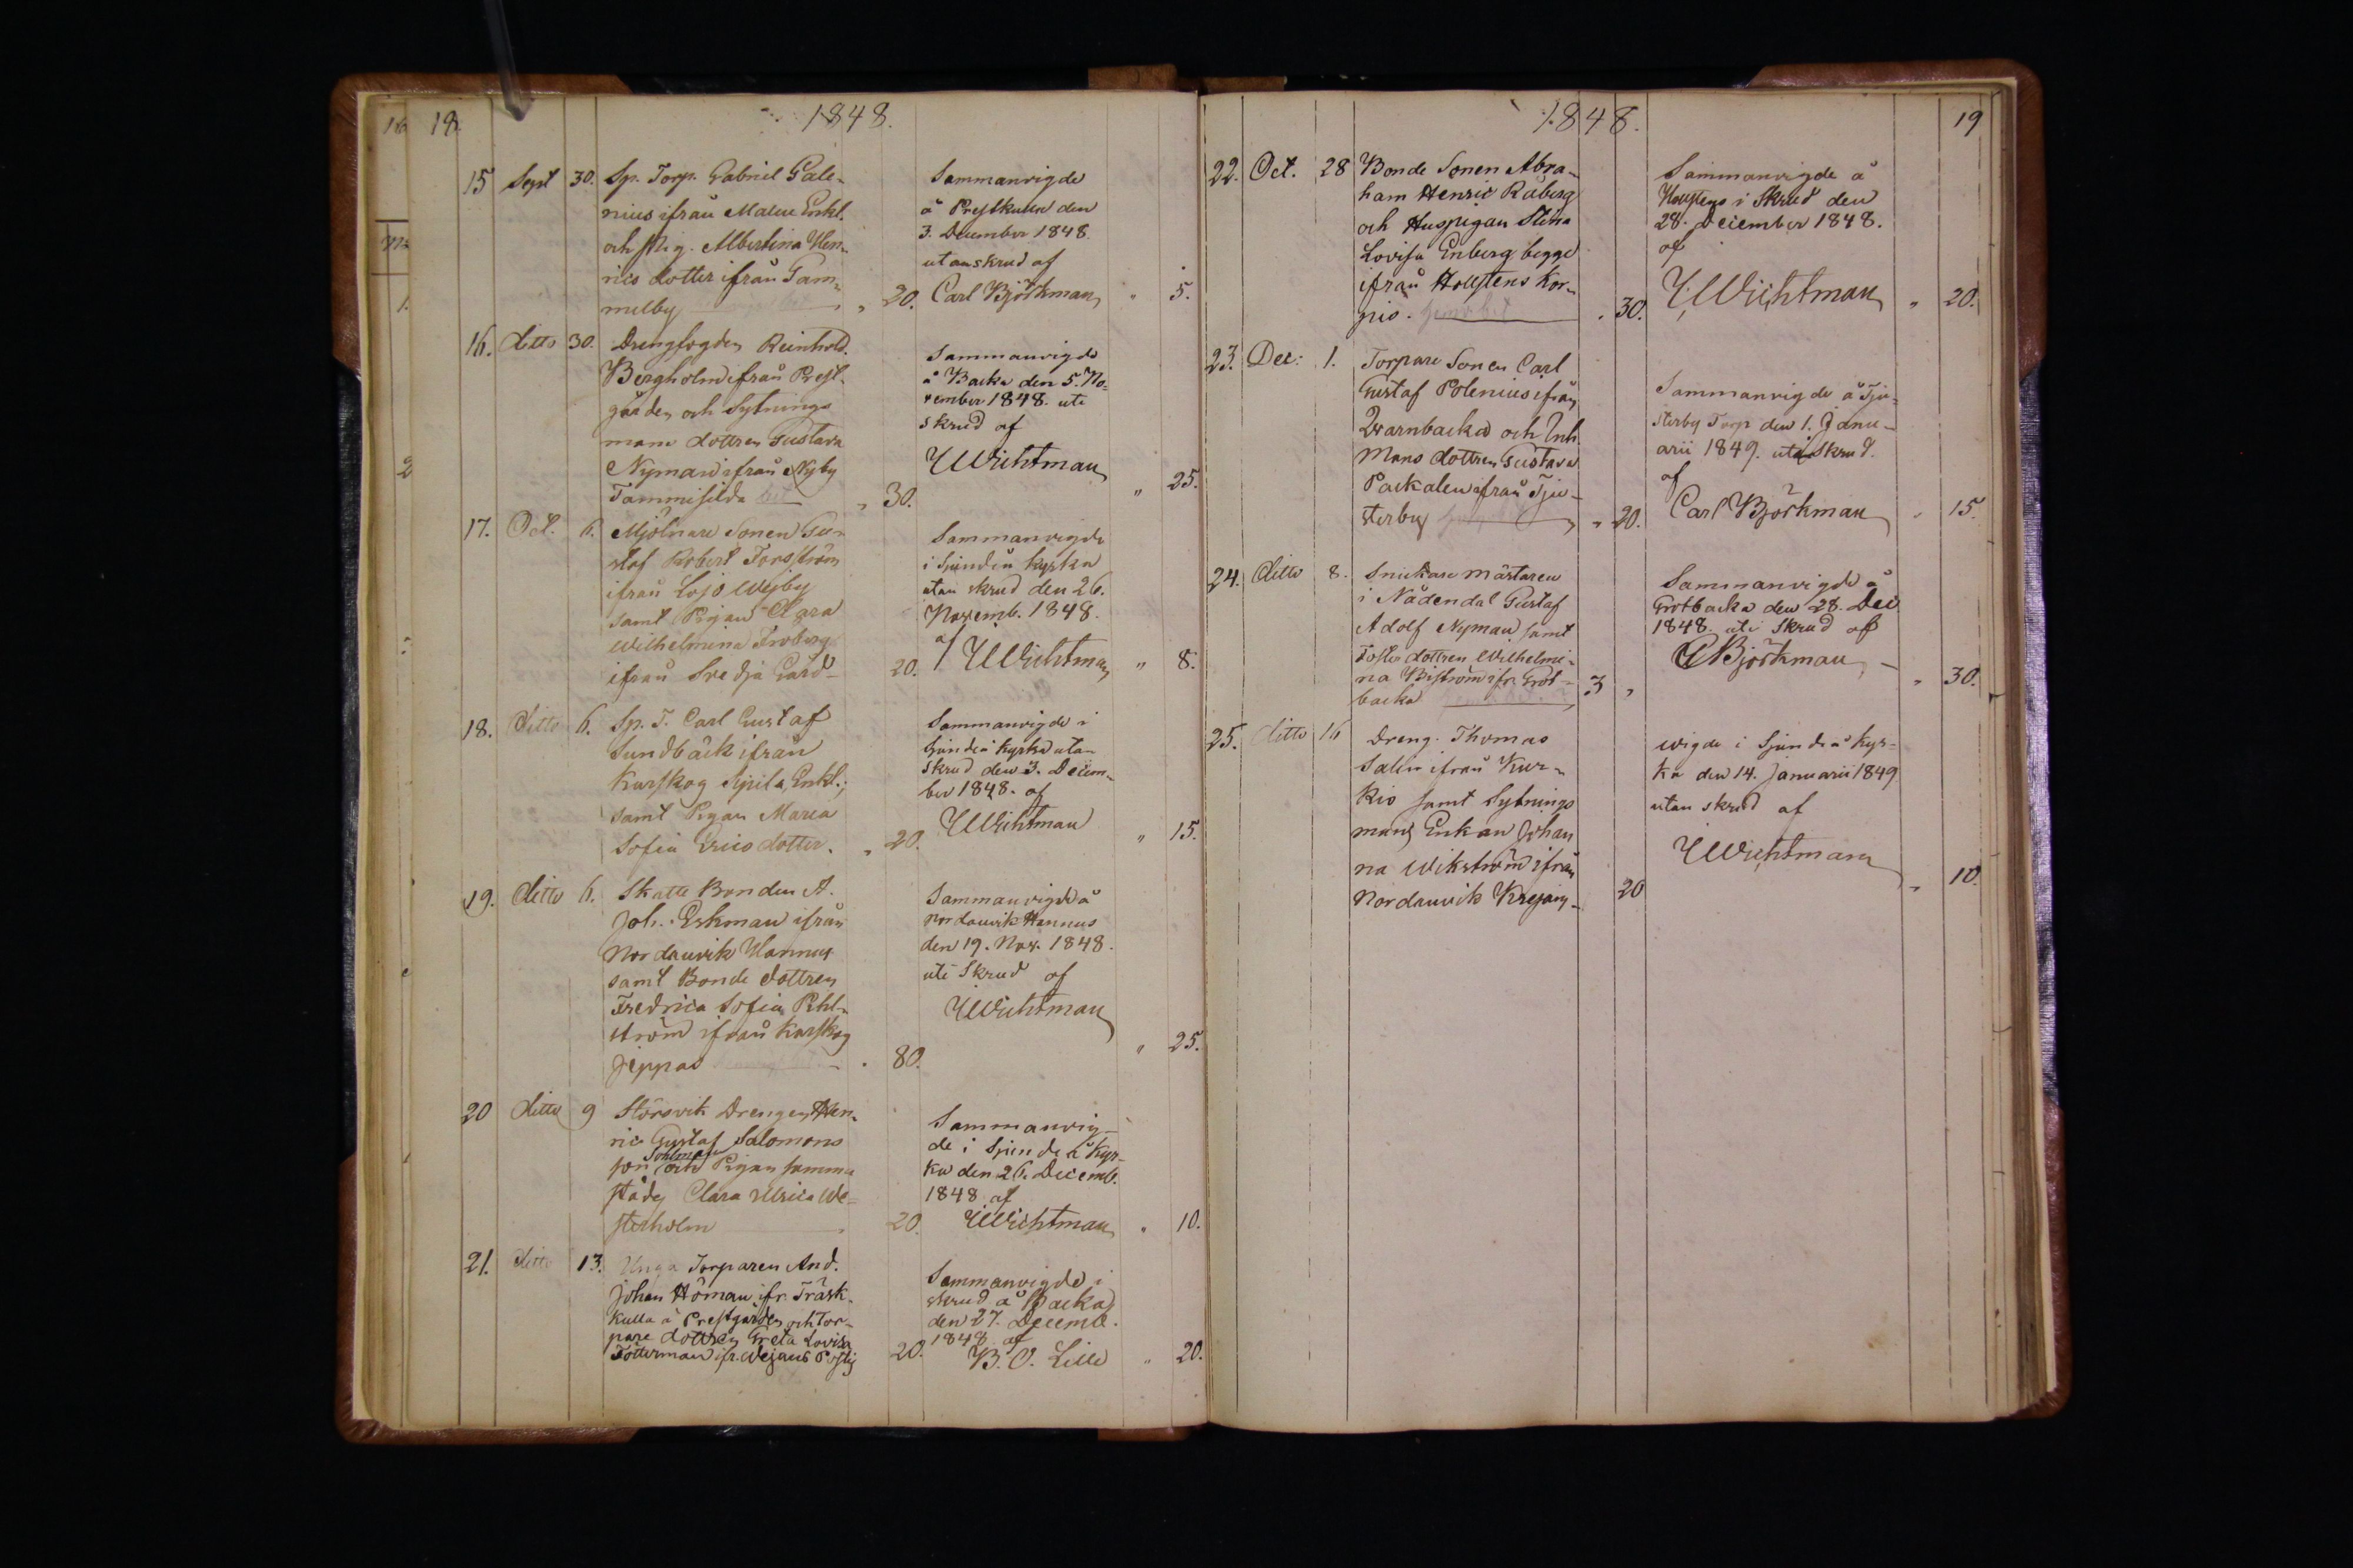 18.
1848.
15 Sept 30. Sp. Torp. Gabriel Gale-
nius ifrån Malm Enkl.
och P.ig. Albertina Hen-
rics dotter ifrån Gam-
melby " 20.
Sammanvigde
å Prestkulla den
3. December 1848
utan skrud af
Carl Björkman " 5.
16. ditto 30. Drengfogden Reinhold.
Bergholm ifrån Prest-
gården och Sytnings
mans dottren Gustava
Nyman ifrån Nyby
Tammisilda " 30.
Sammanvigde
å Backa den 5. No-
vember 1848. uti
skrud af
Wichtman " 25.
17. Oct. 6. Mjölnare Sonen Gu-
staf Robert Forsström
ifrån Lojo Wejby
samt Pigan Clara
Wilhelmina Froberg
ifrån Svedja Gård 20.
Sammanvigde
i Sjundeå kyrka
utan skrud den 26.
Novemb. 1848.
af Wichtman " 8.
18. ditto 6. Sp. T. Carl Gustaf
Sundbäck ifrån
Karskog Sipila Enkl.;
samt Pigan Maria
Sofia Ericsdotter. " 20.
Sammanvigde i
Sjundeå Kyrka utan
skrud den 3. Decem-
ber 1848. af
Wichtman " 15.
19. ditto 6. Skatte Bonden A.
Joh. Eskman ifrån
Nordanvik Hannus
samt Bonde dottren
Fredrica Sofia Pihl-
ström ifrån Karskog
Jeppas 80.
Sammanvigde å
Nordanvik Hannus
den 19. Nov. 1848.
uti Skrud af
Wichtman
" 25.
20 ditto 9 Störsvik Drengen Hen-
ric Gustaf Salomons
son Sohlman och Pigan samma
städs Clara Ulrica We-
sterholm 20.
Sammanvig-
de i Sjundeå Kyr-
ka den 26. Decemb.
1848 af
Wichtman " 10.
21. ditto 13. Unga Torparen And.
Johan Höman ifr. Träsk-
kulla å Prestgården och Tor-
pare dottren Greta Lovisa
Fötterman ifr. Wejans 20.
Sammanvigde i
skrud å Backa
den 27. Decemb.
1848 af
B. O. Lille " 20.
1848.
19
22. Oct. 28 Bonde Sonen Abra-
ham Henric Råberg
och Huspigan Stina
Lovisa Enberg begge
ifrån Hollstens Kor-
pis. " 30.
Sammanvigde å
Hollstens i Skrud den
28. December 1848.
af
Wichtman " 20.
23. Dec: 1. Torpare Sonen Carl
Gustaf Polenius ifrån
Qvarnbacka och Inh.
Mans dottren Gustava
Packalen ifrån Tju-
sterby " 20.
Sammanvigde å Tju-
sterby Torp den 1. Janu-
arii 1849. uti Skrud.
af
Carl Björkman " 15.
24. ditto 8. Snickare Mästaren
i Nådendal Gustaf
Adolf Nyman samt
Foster dottren Wilhelmi-
na Biström ifr. Grot-
backa 3 "
Sammanvigde å
Grotbacka den 28. Dec
1848. uti skrud af
C Björkman
" 30.
25. ditto 16 Dreng. Thomas
Salin ifrån Kur-
kis samt Sytnings
mans Enkan Johan
na Wikström ifrån
Nordanvik Krejans 20
wigde i Sjundeå Kyr-
ka den 14. Januarii 1849
utan skrud af
Wichtman
" 10.